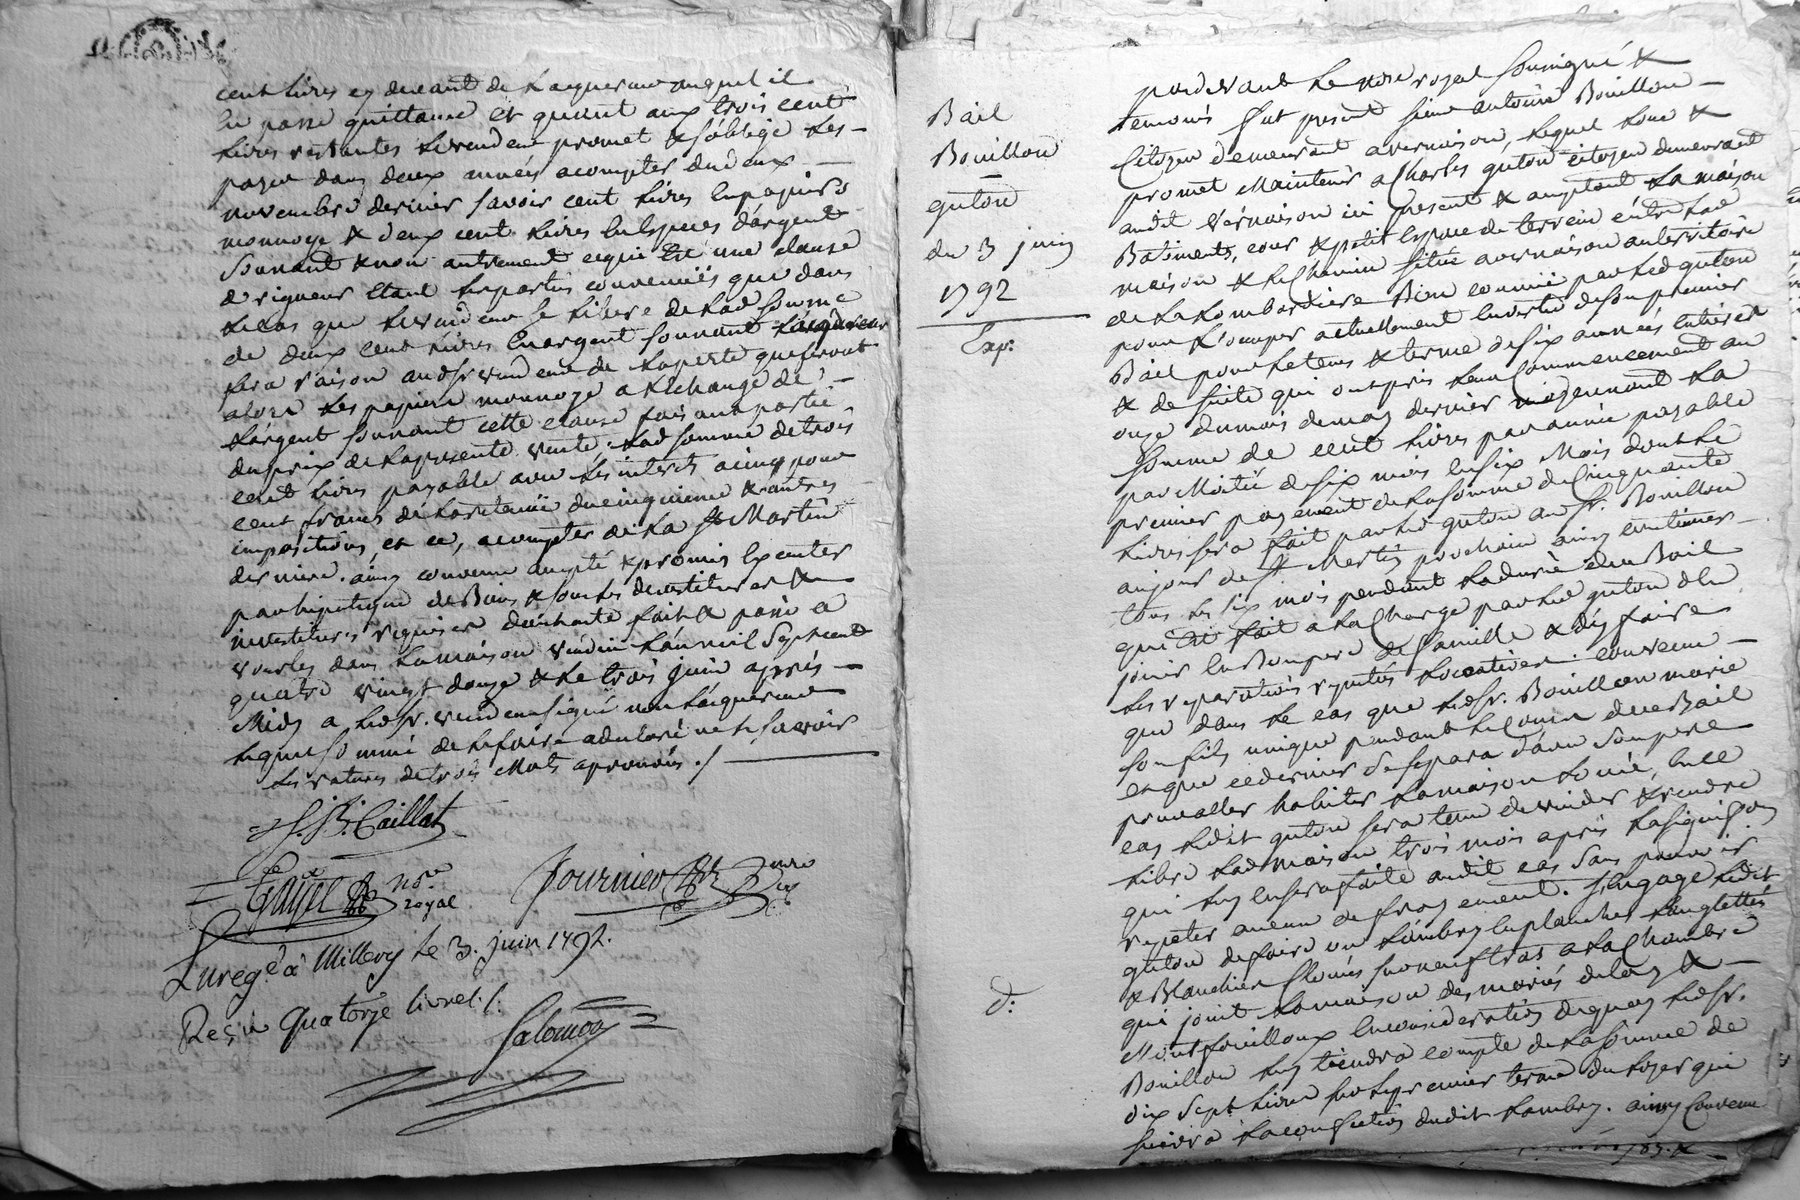 cent livres en deneant de Laquereur auquel il
lui passe quittance et quant aux trois cent
livres restantes levendeur promet & s'oblige les
payer dans deux années acompter du deux
novembre dernier savoir cent livres en papiers
monnoye & deux cent livres en especes d'argent
sonnant & non autrement ce qui est une clause
de rigueur étant les parties convenues que dans
le cas que levendeur se libere de lad. somme
de deux cent livres en argent sonnant L'acquereur
fera raison aud. sr. vendeur de la perte que feront
alors les papiers monnoye a l'echange de
l'argent sonnant cette clause fais ant partie
du prix de la presente vente, lad. somme de trois
cent livres payable avec les interets a cinq pour
cent francs de la retenue du cinquieme & autres
impositions, et ce, acompter de la St. Martin
derniere. ainsy convenu accepté & promis executer
par hipoteque de Biens & sous les devestitures &
investitures requises dont acte fait & passé a
vourles dans la maison vendeur L'an mil sept cent
quatre vingt douze & le trois juin après
Midy a led. sr. vendeur signé non L'acquereur
lequel sommé de le faire a declaré ne le savoir
les ratures de trois Mots aprouvés ./
J. B. Caillat
Gayet nore. royal
fournier
Enregé. à Millery le 3. juin 1792.
Reçu Quatorze livres ./.
Salomon
Bail
Bouillon
guton
du 3 juin
1792
Exp:
pardevant le nore royal soussigné &
temoins fut present sieur antoine Bouillon
Citoyen demeurant a vernaison, lequel loue &
promet Maintenir a Charles guton citoyen demeurant
audit vernaison ici present & acceptant La maison
Batiments, cour & petit espace de terrein entre lad.
maison & le Chemin située a vernaison au territoire
de la Lombardiere Bien connue par led. guton
pour l'occuper actuellement en vertu de son premier
Bail pour le tems & terme de six années entieres
& de suite qui ont pris leur Commencement au
onze du mois de may dernier moyennant La
somme de cent livres par année payable
par Moitié de six mois en six Mois dont le
premier payement de la somme de Cinquante
livres sera fait par led. guton aud. sr. Bouillon
au jour de St. Martin prochain ainsy continuer
tous les six mois pendant la durée du Bail
qui est fait a la Charge par led. guton de
jouir en Bon pere de famille & d'y faire
les reparations reputés locatives. Convenu
que dans le cas que led. sr. Bouillon marie
son fils unique pendant le Cours du Bail
et que ce dernier se separa d'avec son pere
pour aller habiter la maison louée, en ce
cas ledit guton sera tenu de vuider & rendre
libre lad. maison trois mois après la signifon
qui luy en sera faite audit cas sans pouvoir
repeter aucun defrayement. S'engage ledit
guton de faire un Lambry en planches Langlettés
& Blanchies Clouées sur neuf tras a la Chambre
d:
qui joint la maison des mariés delay &
Montfouilloux en consideration de quoy led. sr.
Bouillon luy tiendra compte de la somme de
dix sept livres sur le premier terme du loyer qui
suivra la confection dudit Lambry. ainsy Convenu